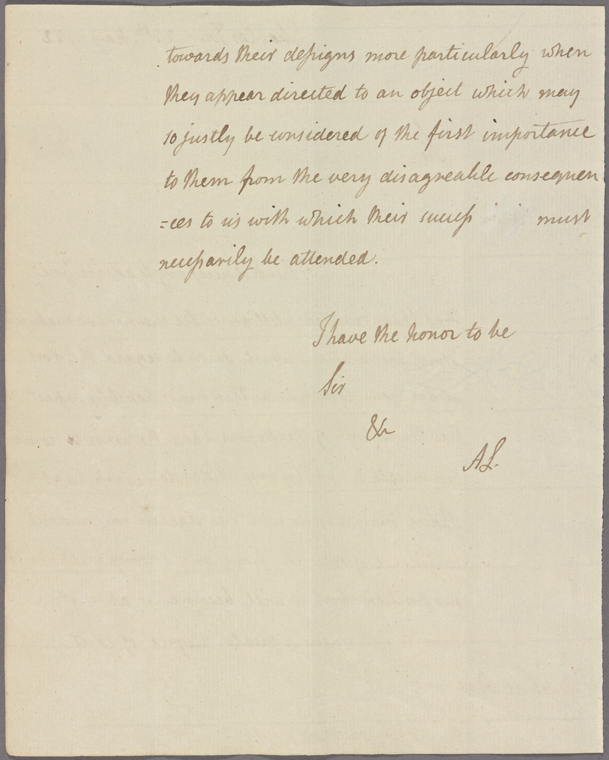 towards their designs more particularly when
they appear directed to an object which may
so justly be considered of the first importance
to them from the very disagreable consequen
=ces to us with which their success must
necessarily be attended.
I have the honor to be
Sir
&c
AL.